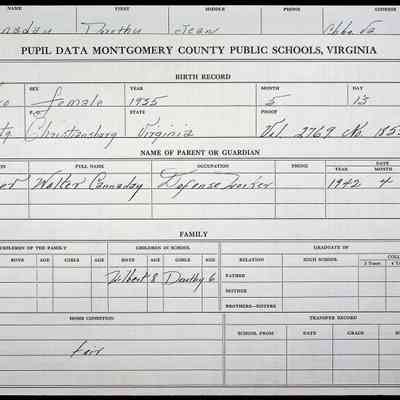 NAME FIRST MIDDLE PHONE ADDRESS
Dorothy Jean
PUPIL DATA MONTGOMERY COUNTY PUBLIC SCHOOLS, VIRGINIA
BIRTH RECORD
SEX YEAR MONTH DAY
female 1935 5 13
P.O. STATE PROOF
Christiansburg Virginia Vol. 2769 No. 185
NAME OF PARENT OR GUARDIAN
FULL NAME OCCUPATION PHONE DATE
YEAR MONTH
Walter Cannaday Defense Worker 1942 4
FAMILY
CHILDREN OF THE FAMILY CHILDREN IN SCHOOL GRADUATE OF
BOYS AGE GIRLS AGE BOYS AGE GIRLS AGE RELATION HIGH SCHOOL 2 Years 4
Wilbert 8 Dorothy 6 FATHER
MOTHER
BROTHERS—SISTERS
HOME CONDITION TRANSFER RECORD
SCHOOL FROM DATE GRADE
Fair